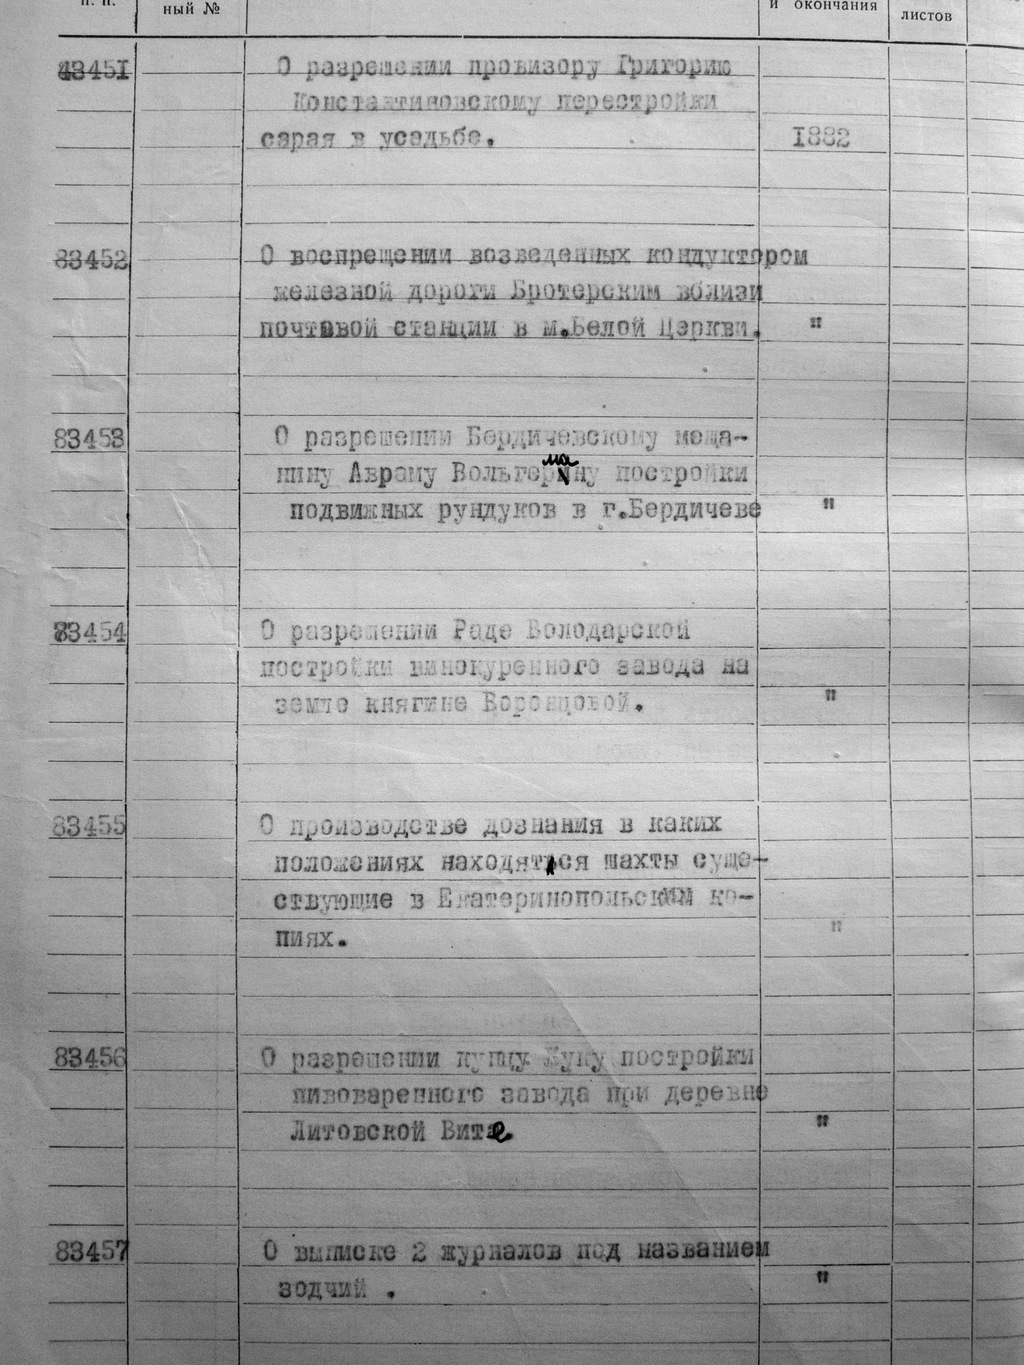 п. п.
ный №
и окончания
листов
83451
О разрешении провизору Григорию
Константиновскому перестройки
сарая в усадьбе.
1882
83452
О воспрещении возведенных кондуктором
железной дороги Бротерским вблизи
почтовой станции в м.Белой Церкви.
"
83453
О разрешении Бердичевскому меща-
нину Авраму Вольгерману постройки
подвижных рундуков в г.Бердичеве
"
83454
О разрешении Раде Володарской
постройки винокуренного завода на
земле княгине Воронцовой.
"
83455
О производстве дознания в каких
положениях находятся шахты суще-
ствующие в Екатеринопольским ко-
пиях.
"
83456
О разрешении купцу Куку постройки
пивоваренного завода при деревне
Литовской Вите
"
83457
О выписке 2 журналов под названием
зодчий .
"